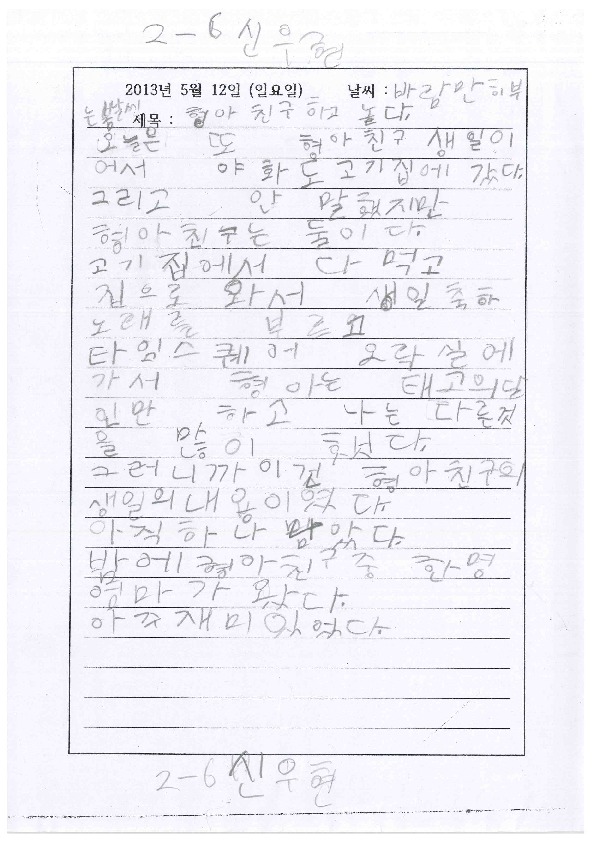 2-6 신우현
2013년 5월 12일 (일요일) 날씨 : 바람만 히부
는 봄날씨 제목 : 형아 친구 하고 놀다.
오늘은 또 형아 친구 생일이
어서 야화도 고기집에 갔다.
그리고 안 말했지만
형아친구는 둘이다.
고기 집에서 다 먹고
집으로 와서 생일 축하
노래를 부르고
타임스퀘어 오락실에
가서 형아는 태고의달
인만 하고 나는 다른것
을 많이 했다.
그러니까이건 형아친구의
생일의내용이였다.
아직하나 맘았다.
밤에형아친구중 한명
엄마가 왔다.
아주재미있었다.
2-6 신우현